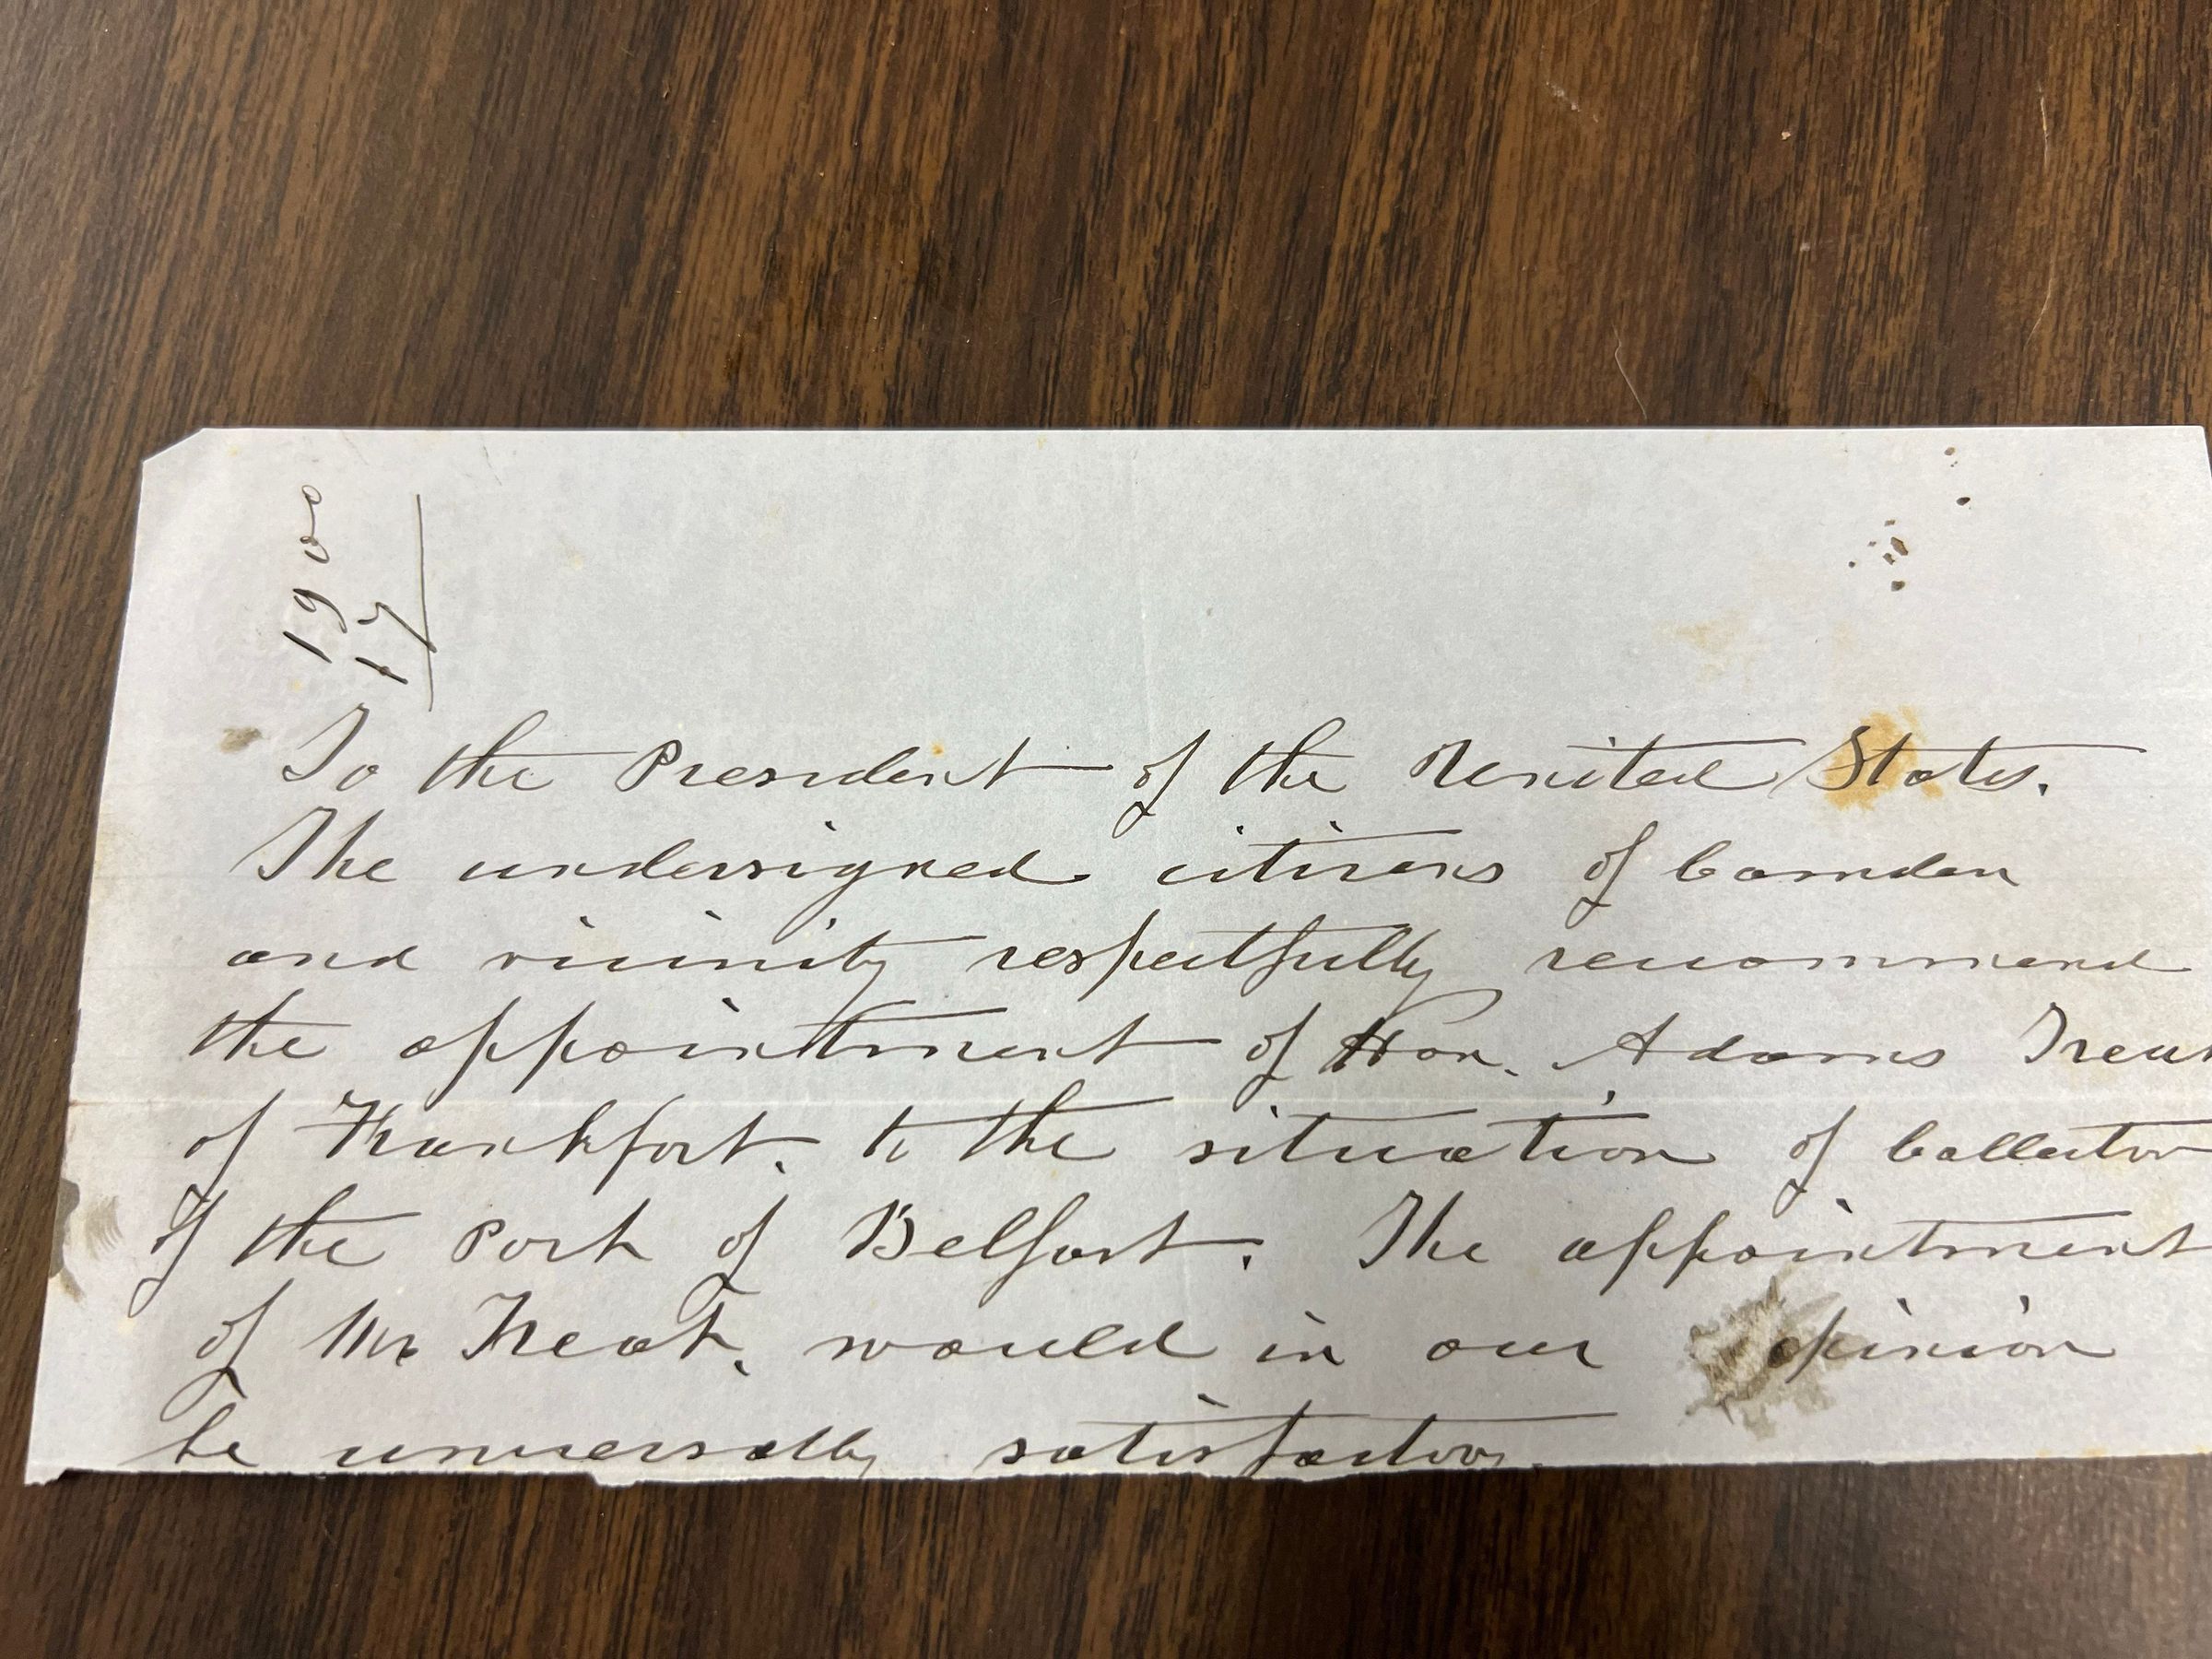 1900
17
To the President of the United States.
The undersigned citizens of Camden
and vicinity respectfully recommend
the appointment of Hon. Adams Treat
of Frankfort. to the situation of Collector
of the Port of Belfast. The appointment
of Mr Treat. would in our opinion
be universally satisfactory.